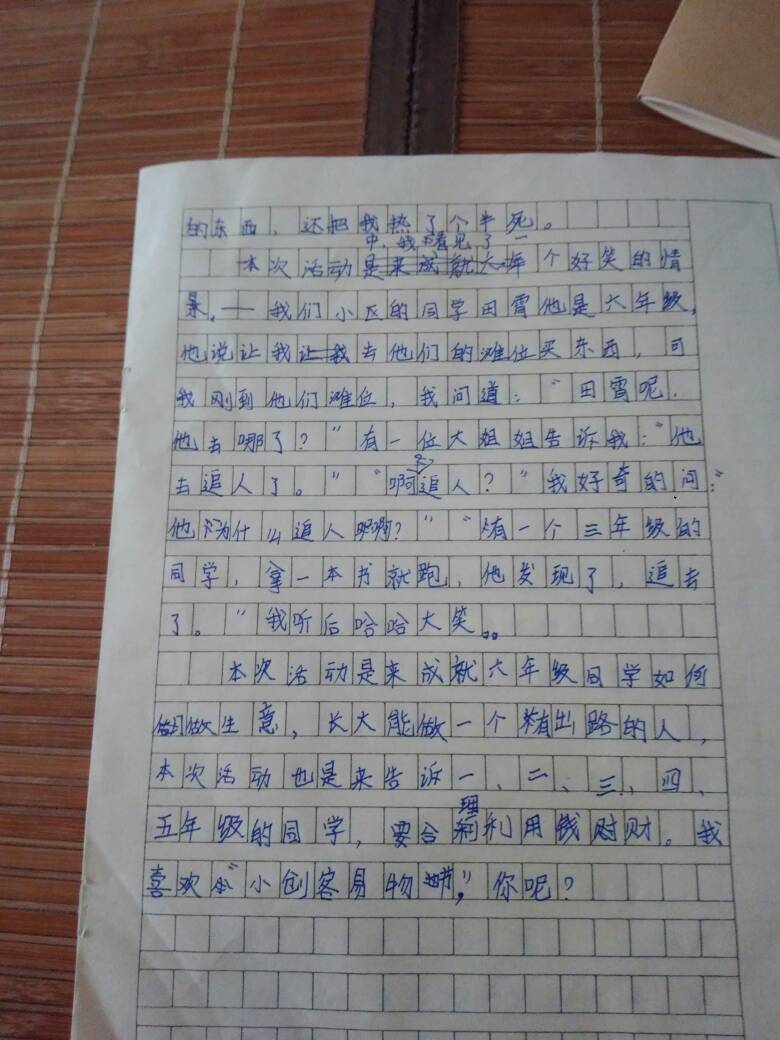 的东西，还把我热了个半死。
中，我看见了一
本次活动是来成就六年个好笑的情
景，——我们小区的同学田霄他是六年级，
他说让我让我去他们的滩位买东西，可
我刚到他们滩位，我问道：“田霄呢．
他去哪了？”有一位大姐姐告诉我：“他
去追人了。”“啊追人？”我好奇的问：“
他为什么追人啊？”“有一个三年级的
同学，拿一本书就跑，他发现了，追去
了。”我听后哈哈大笑。
本次活动是来成就六年级同学如何
做生意，长大能做一个有出路的人，
本次活动也是来告诉一、二、三、四、
理
五年级的同学，要合利用钱财。我
喜欢“小创客易物节”，你呢？